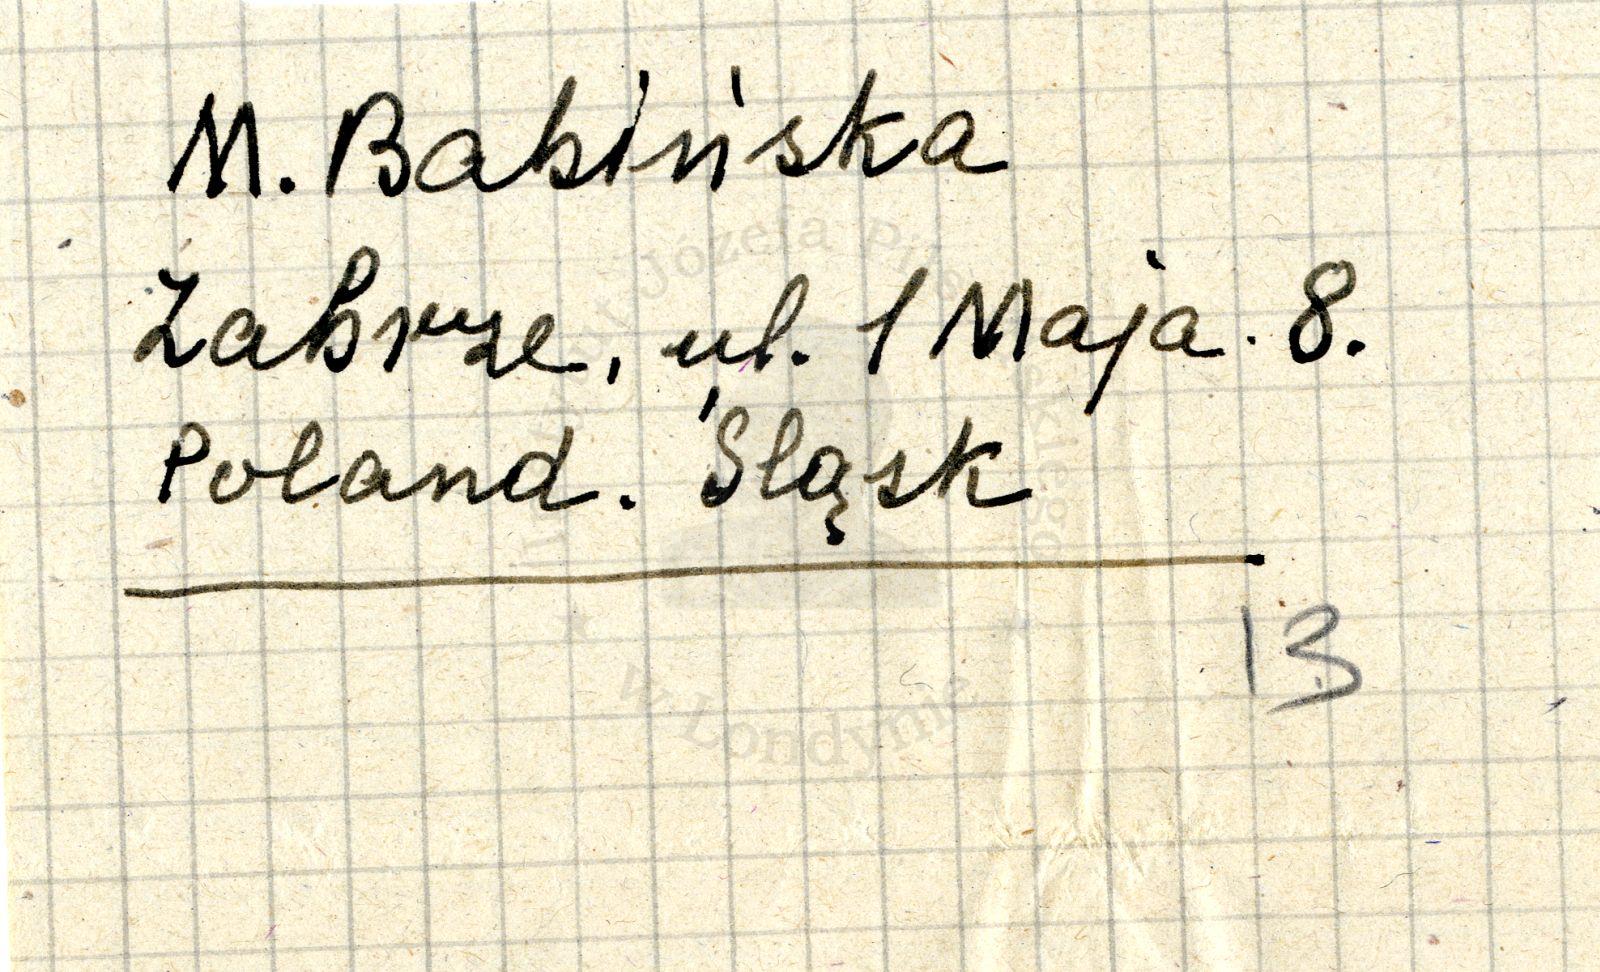 M. Babińska
Zabrze, ul. 1 Maja. 8.
Poland. Śląsk
13
Instytut Józefa Piłsudskiego
w Londynie